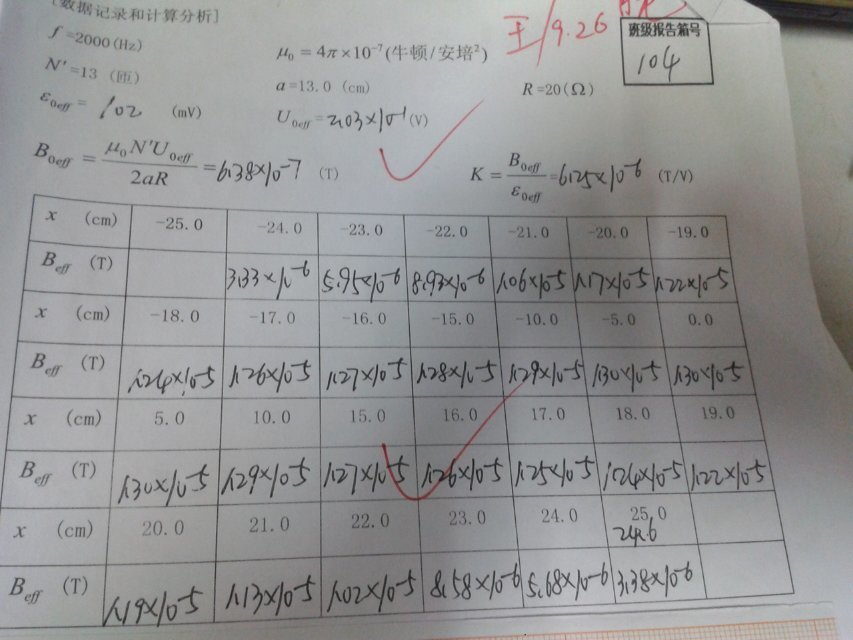 [数据记录和计算分析]
王/9.26
班级报告箱号
104
f=2000(Hz)
μ₀=4π×10⁻⁷(牛顿/安培²)
N'=13 (匝)
a=13.0 (cm)
R=20(Ω)
ε₀eff= 102 (mV)
U₀eff=2.03×10⁻¹(V)
B₀eff=μ₀N'U₀eff/2aR=6.38×10⁻⁷ (T)
K=B₀eff/ε₀eff=6.25×10⁻⁶ (T/V)
x (cm) -25.0 -24.0 -23.0 -22.0 -21.0 -20.0 -19.0
Beff (T) 3.33×10⁻⁶ 5.95×10⁻⁶ 8.93×10⁻⁶ 1.06×10⁻⁵ 1.17×10⁻⁵ 1.22×10⁻⁵
x (cm) -18.0 -17.0 -16.0 -15.0 -10.0 -5.0 0.0
Beff (T) 1.24×10⁻⁵ 1.26×10⁻⁵ 1.27×10⁻⁵ 1.28×10⁻⁵ 1.29×10⁻⁵ 1.30×10⁻⁵ 1.30×10⁻⁵
x (cm) 5.0 10.0 15.0 16.0 17.0 18.0 19.0
Beff (T) 1.30×10⁻⁵ 1.29×10⁻⁵ 1.27×10⁻⁵ 1.26×10⁻⁵ 1.25×10⁻⁵ 1.24×10⁻⁵ 1.22×10⁻⁵
x (cm) 20.0 21.0 22.0 23.0 24.0 25.0
24.6
Beff (T) 1.19×10⁻⁵ 1.13×10⁻⁵ 1.02×10⁻⁵ 8.58×10⁻⁶ 5.68×10⁻⁶ 3.38×10⁻⁶